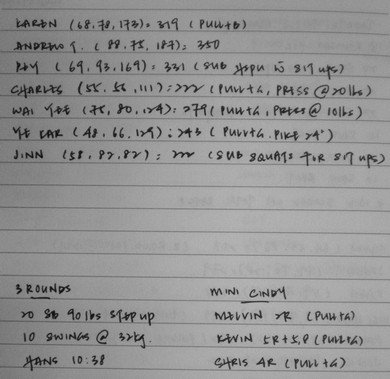 KAREN (68, 78, 173) = 319 (PULL+B)
ANDREW T. (88, 75, 187) = 350
REY (69, 93, 169) = 331 (SUB HSPU W SIT UPS)
CHARLES (55, 56, 111) = 222 (PULL+G, PRESS @ 20lbs)
WAI YEE (75, 80, 124) = 279 (PULL+G, PRESS @ 10lbs)
YE KAR (48, 66, 129) = 243 (PULL+G. PIKE 24")
JINN (58, 82, 82) = 222 (SUB SQUATS FOR SIT UPS)
3 ROUNDS
20 SB 90 lbs STEP UP
10 SWINGS @ 32kg.
HANS 10:38
MINI CINDY
MELVIN 7R (PULL+G)
KEVIN 5R + 5, 8 (PULL+G)
CHRIS 4R (PULL+G)